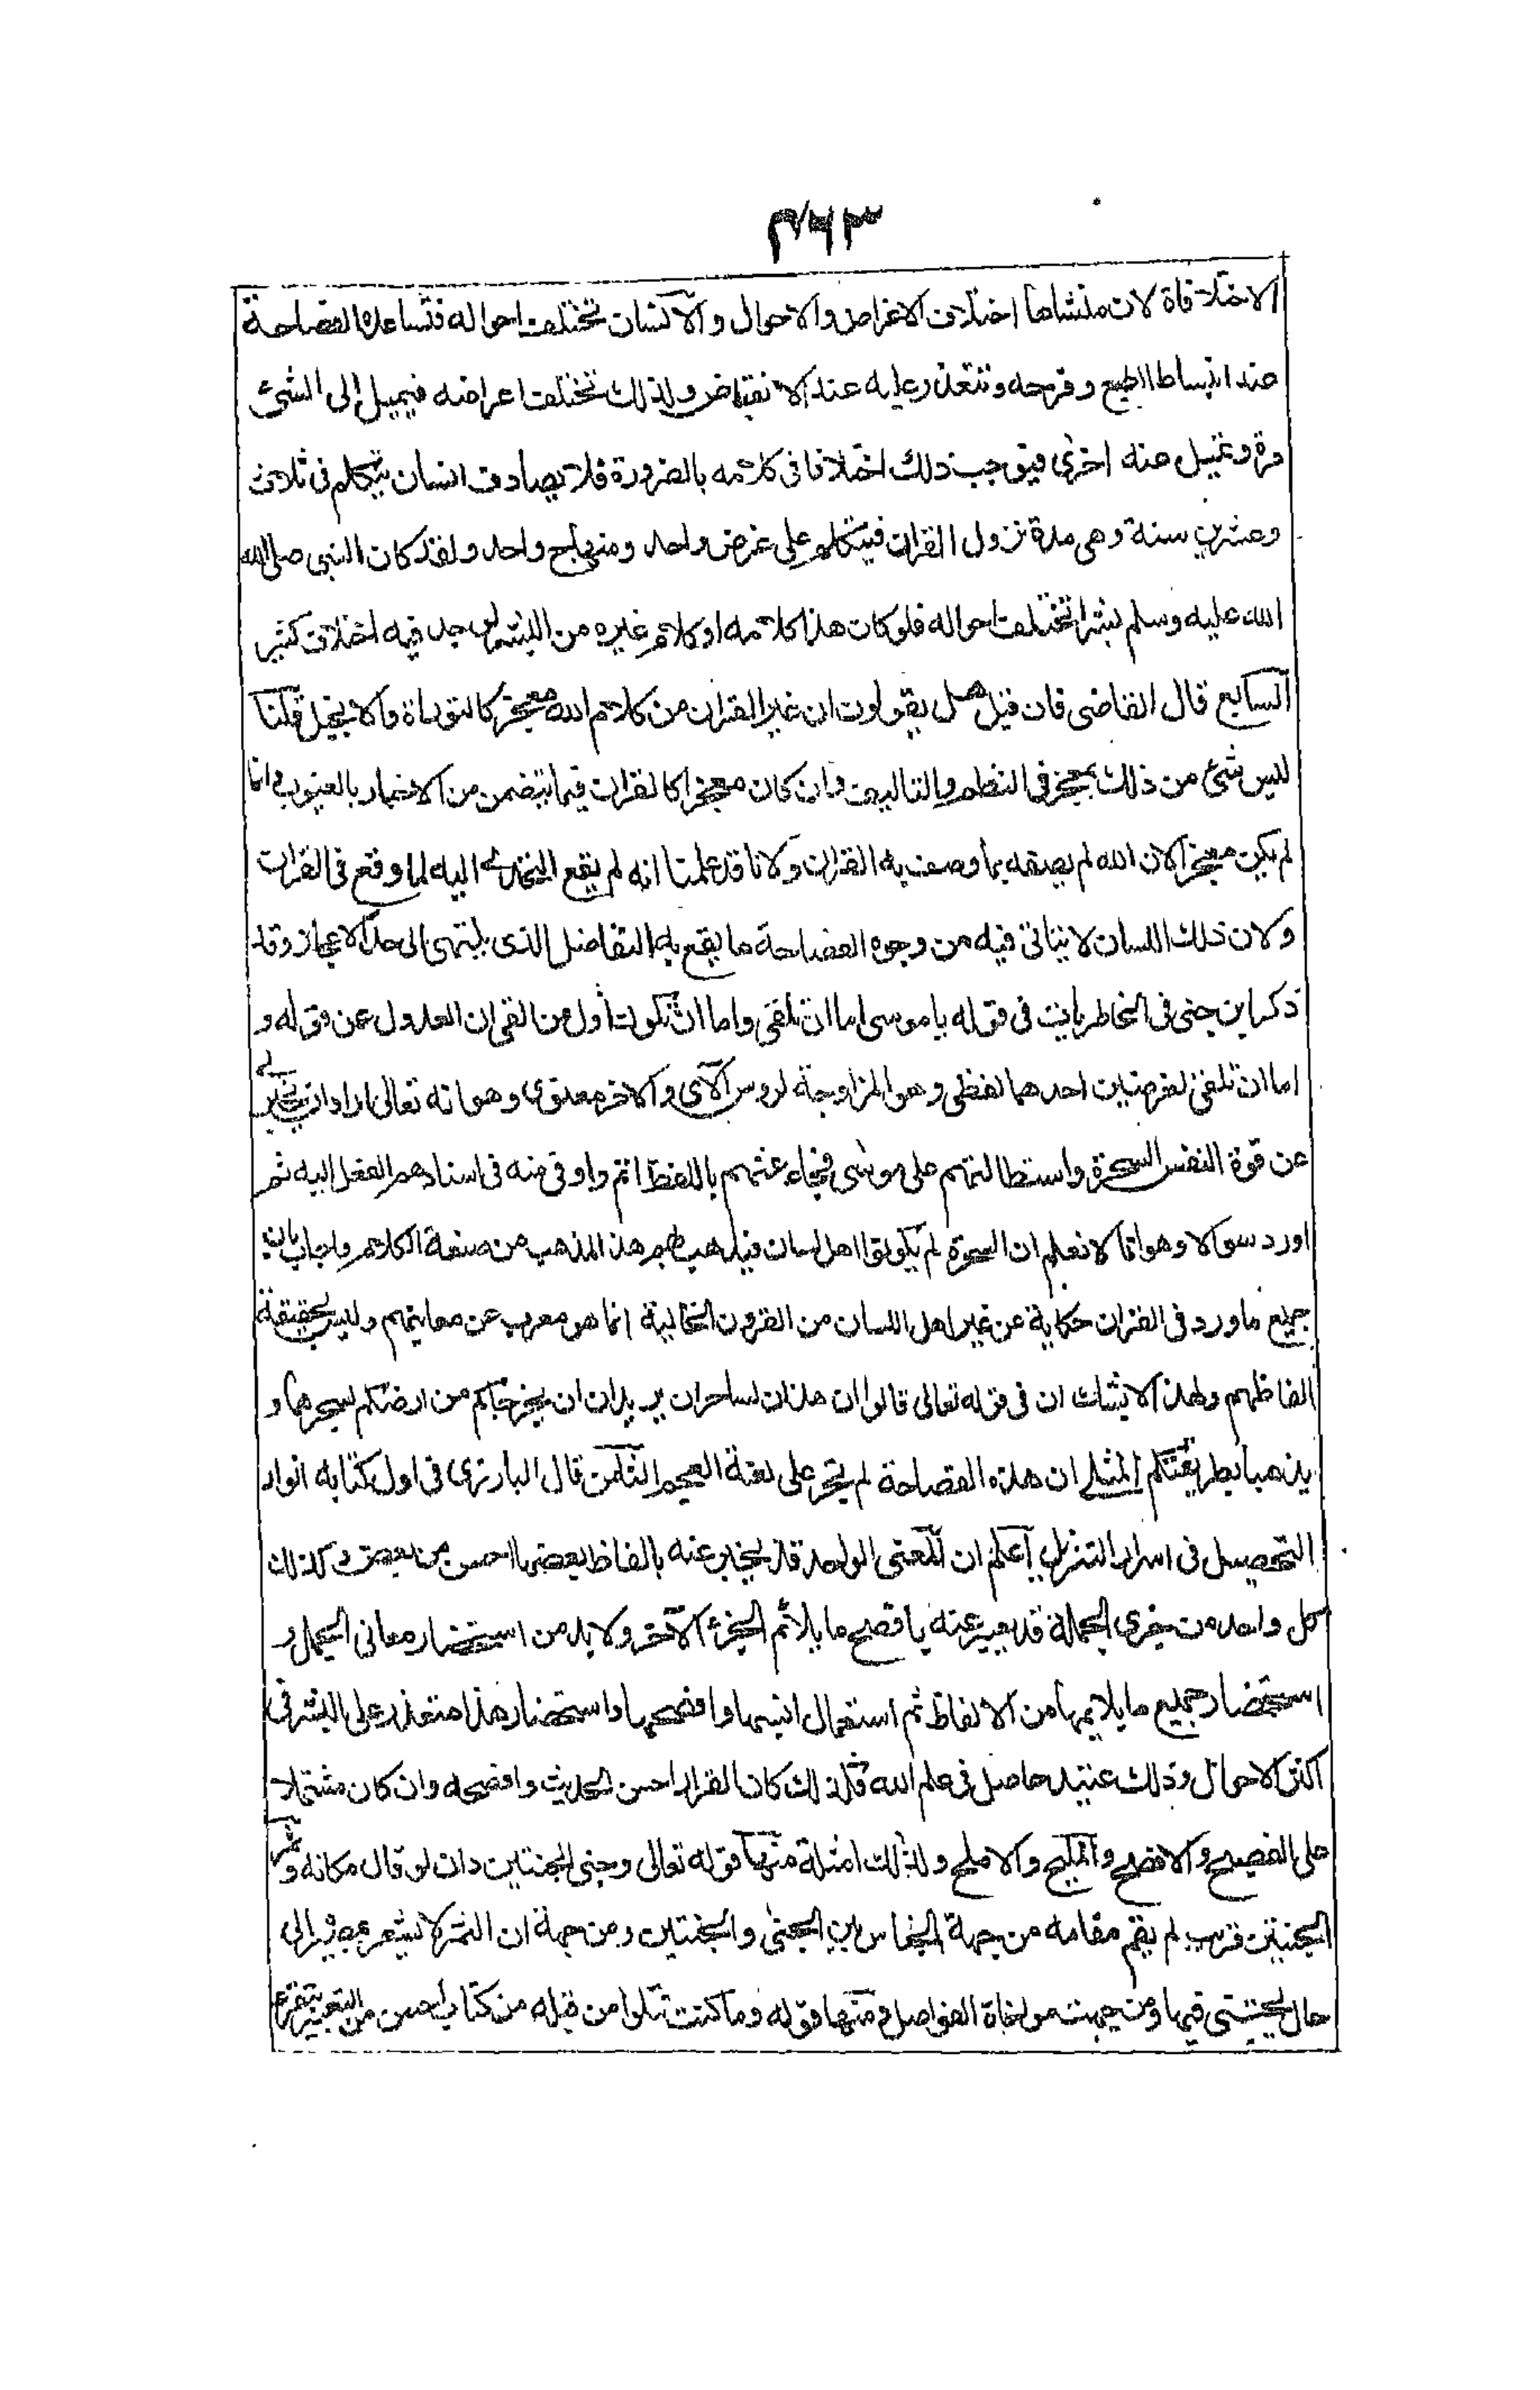 ٧٦٣
الاختلافاة لان منشاها اختلاف الاغراض والاحوال والآنسان تختلف احواله فتساعده الفصاحة
عند انبساط الطبع وفرحه وتتعذر عليه عند الانقباض ولذلك تختلف اغراضه فيميل إلى الشئ
مرة وتميل عنه اخرى فيوجب ذلك اختلافا فى كلامه بالضرورة فلا يصادف انسان يتكلم فى ثلاث
وعشرين سنة وهى مدة نزول القران فيتكلم على غرض واحد ومنهاج واحد ولقد كان النبى صلى الله
الله عليه وسلم بشرا تختلف احواله فلو كان هذا كلامه او كلام غيره من البشر لوجد فيه اختلاف كثير
السابع قال القاضى فان قيل هل يقولون ان غير القران من كلام الله معجز كالتوراة والانجيل قلنا
ليس شئ من ذلك بمعجز فى النظم والتاليف وان كان معجزا كالقران فيما يتضمن من الاخبار بالغيوب وانما
لم يكن معجزا لان الله لم يصفه بما وصف به القران ولانا قد علمنا انه لم يقع التحدى اليه لما وقع فى القران
ولان ذلك اللسان لا يتاتى فيه من وجوه الفصاحة ما يقع به التفاضل الذى ينتهى الى حد الاعجاز وقد
ذكر ابن جنى فى الخاطريات فى قوله ياموسى اما ان تلقى واما ان نكون أول من القى ان العدول عن قوله و
اما ان تلقى لغرضين احدهما لفظى وهو المزاوجة لروس الآى والاخر معنوى وهو انه تعالى اراد ان يخبر
عن قوة النفس السحرة واستطالتهم على موسى فجاء عنهم باللفظ اتم واوفى منه فى اسنادهم الفعل اليه ثم
اورد سوالا وهو انا لا نعلم ان السحرة لم يكونوا اهل لسان فيذهب بهم هذا المذهب من صنعة الكلام واجاب بان
جميع ما ورد فى القران حكاية عن غير اهل اللسان من القرون الخالية انما هو معرب عن معانيهم وليس بحقيقة
الفاظهم ولهذا لا يشك ان فى قوله تعالى قالوا ان هذان لساحران يريدان ان يخرجاكم من ارضكم بسحرهما و
يذهبا بطريقتكم المثلى ان هذه الفصاحة لم يجر على لغة العجم الثامن قال البارزى فى اول كتابه انوار
التحصيل فى اسرار التنزيل آعلم ان المعنى الواحد قد يخبر عنه بالفاظ بعضها احسن من بعض وكذلك
كل واحد من جزى الجملة قد يعبر عنه بافصح ما يلائم الجزء الآخر ولا بد من استحضار معانى الجمل و
استحضار جميع ما يلايمها من الالفاظ ثم استعمال انسبها وافصحها واستحضار هذا متعذر على البشر فى
اكثر الاحوال وذلك عتيد حاصل فى علم الله فلذلك كان القران احسن الحديث وافصحه وان كان مشتملا
على الفصيح والافصح والمليح والاملح ولذلك امثلة منها قوله تعالى وجنى الجنتين دان لو قال مكانه وثمر
الجنتين قريب لم يقم مقامه من جهة الجناس بين الجنى والجنتين ومن جهة ان الثمر لا يشعر بمصيره الى
حال يجتنى فيها ومن جهت مواخاة الفواصل ومنها قوله وما كنت تتلوا من قبله من كتاب احسن من التعبير بتقرء